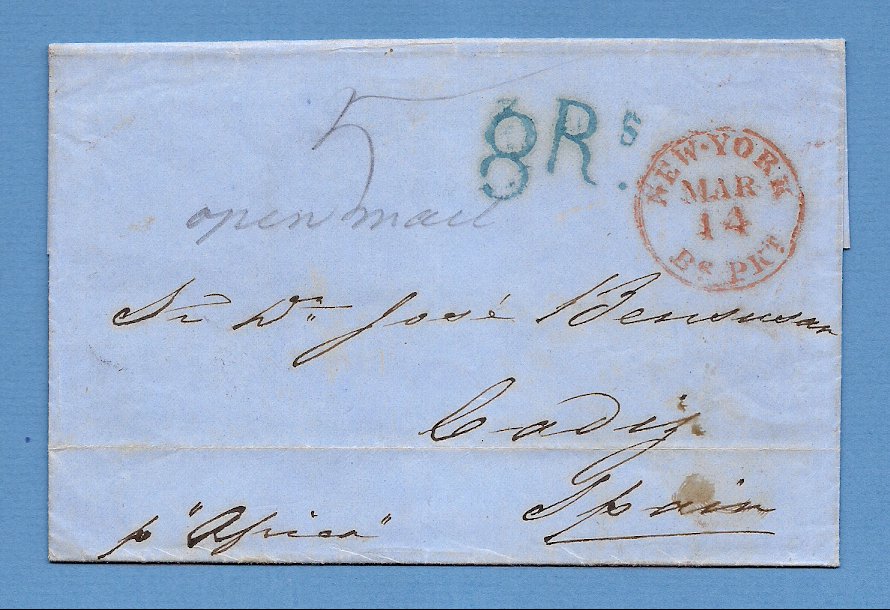 5
8 Rs.
NEW-YORK
MAR
14
Bs. PKT.
open mail
Sr. Dn. José Bensusan
Cadiz
Spain
p "Africa"